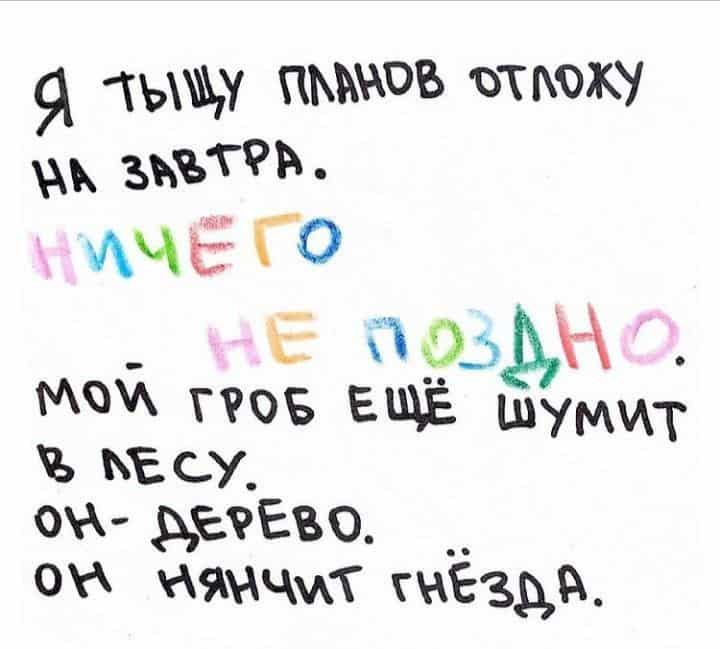 Я ТЫЩУ ПЛАНОВ ОТЛОЖУ
НА ЗАВТРА.
НИЧЕГО
НЕ ПОЗДНО.
МОЙ ГРОБ ЕЩЁ ШУМИТ
В ЛЕСУ.
ОН- ДЕРЕВО.
ОН НЯНЧИТ ГНЁЗДА.